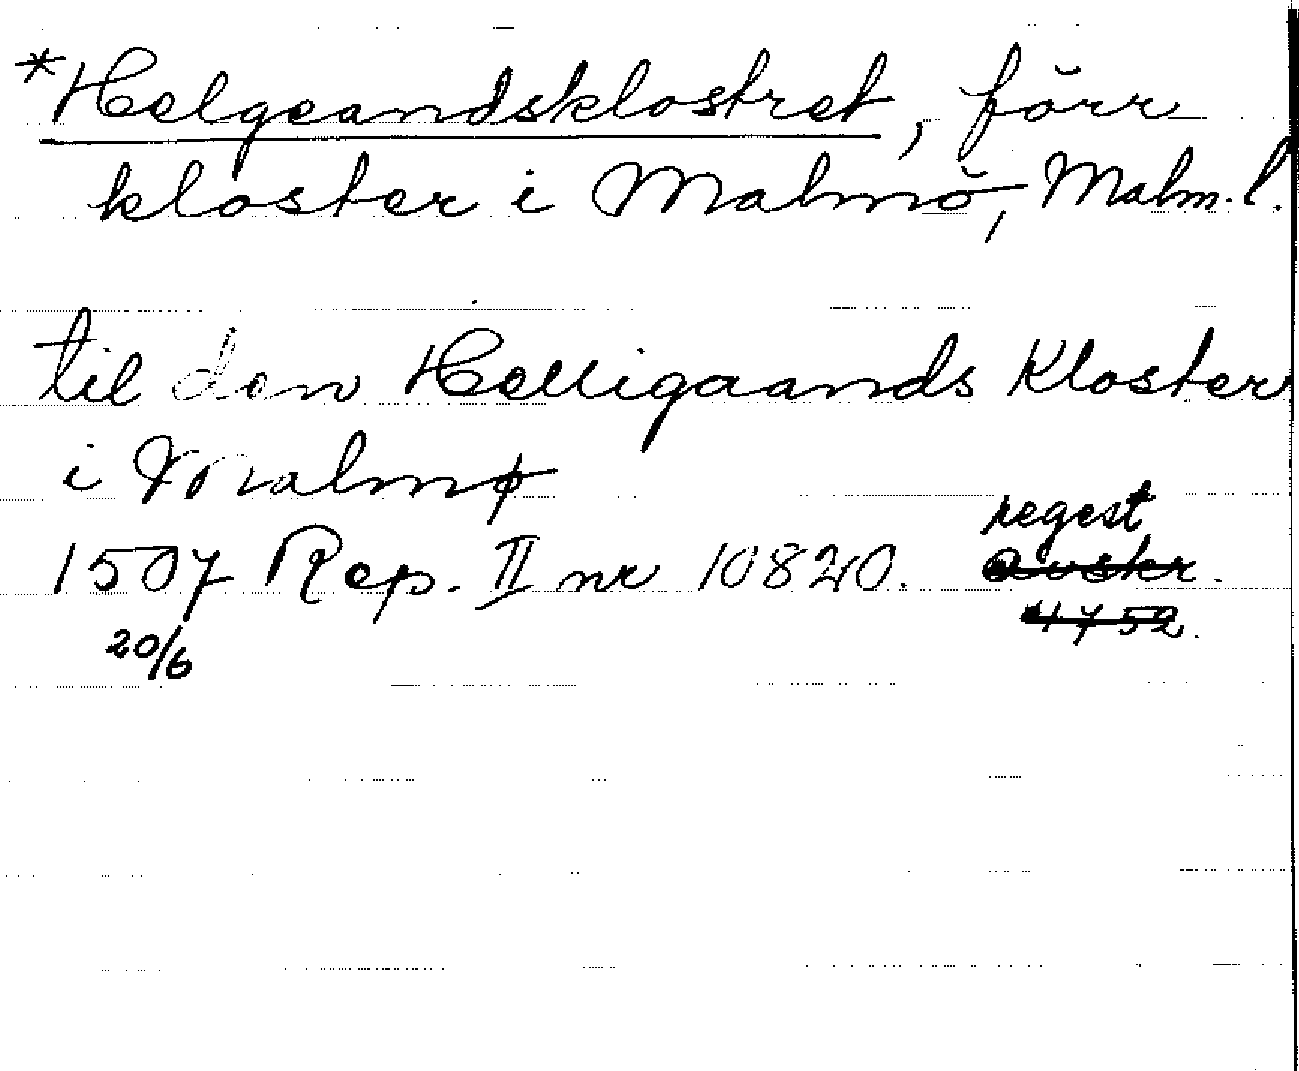 *Helgeandsklostret, förr
kloster i Malmö, Malm. l.
til den Helligaands Kloster
i Malmø
regest
1507 Rep. II nr 10820. avskr.
20/6 4752.